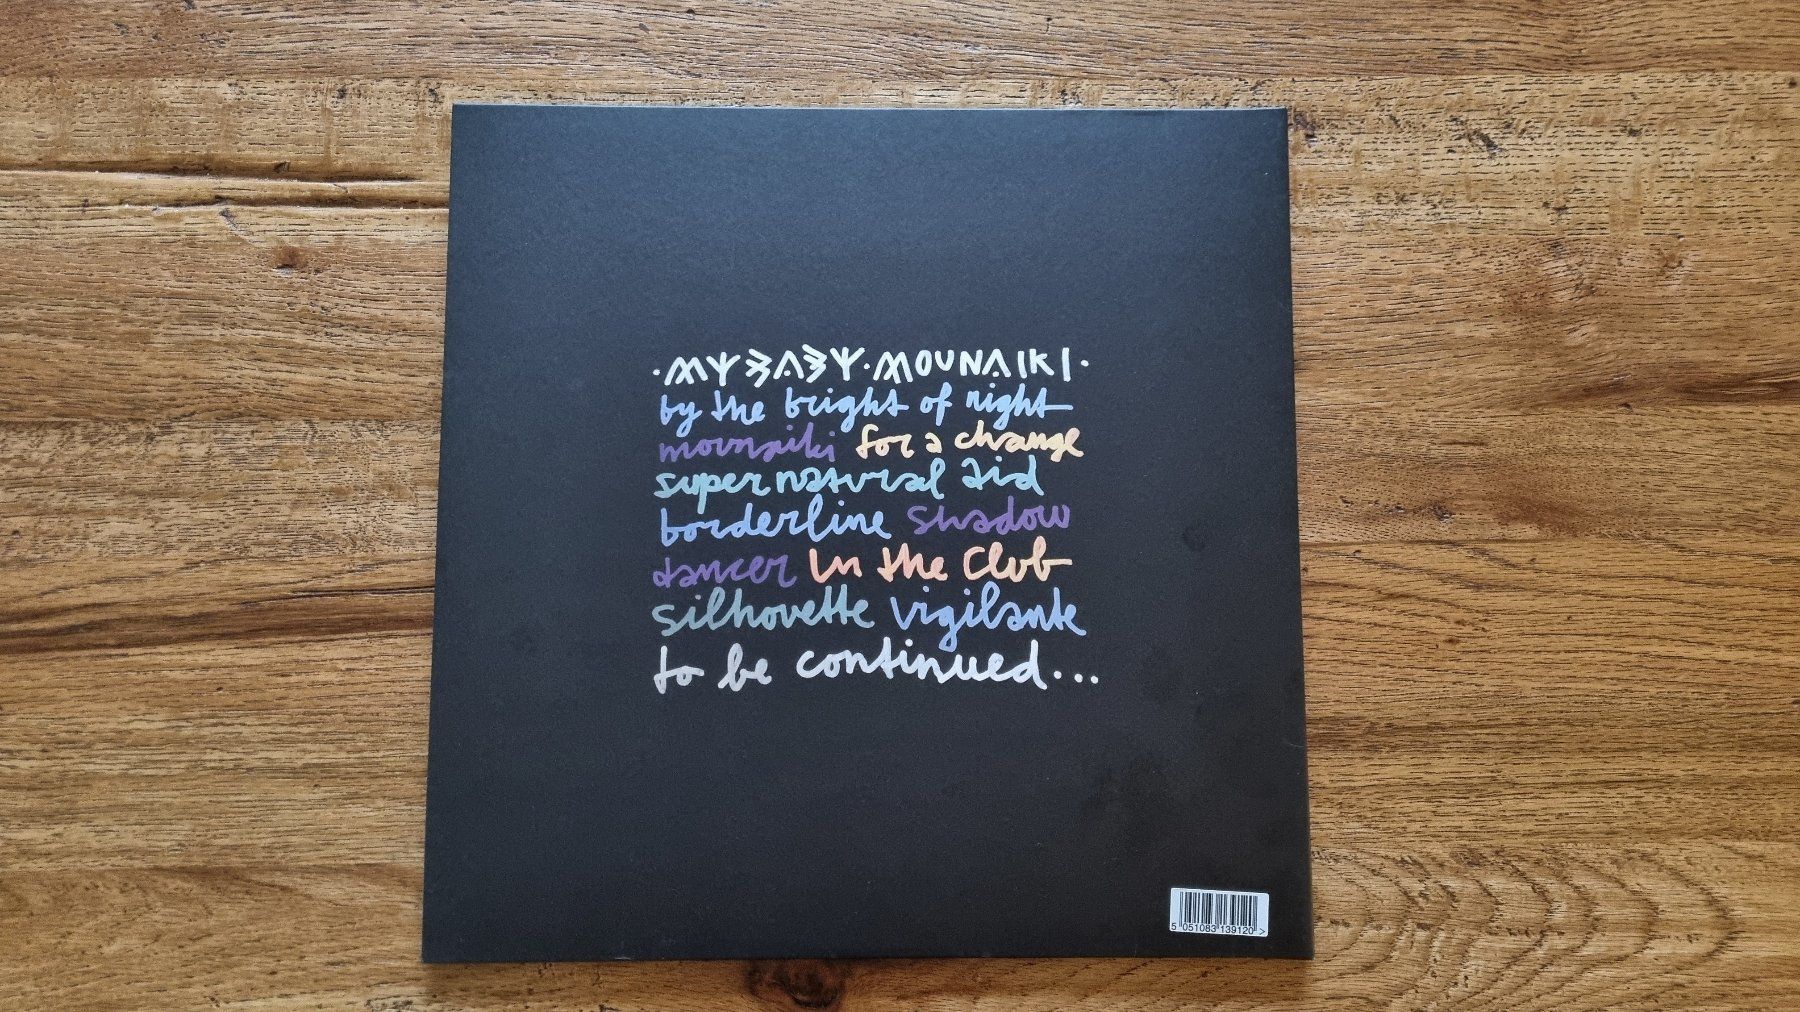 ·MY BABY·MOUNAIKI·
by the bright of night
mounaiki for a change
supernatural aid
borderline shadow
dancer In the Club
silhouette vigilante
to be continued...
5 051083 139120 >